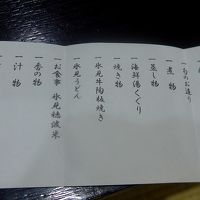 一 旬のお造り
一 煮物
一 蒸し物
一 海鮮湯くぐり
一 焼き物
一 氷見牛陶板焼き
一 氷見うどん
一 お食事 氷見穂波米
一 香の物
一 汁物